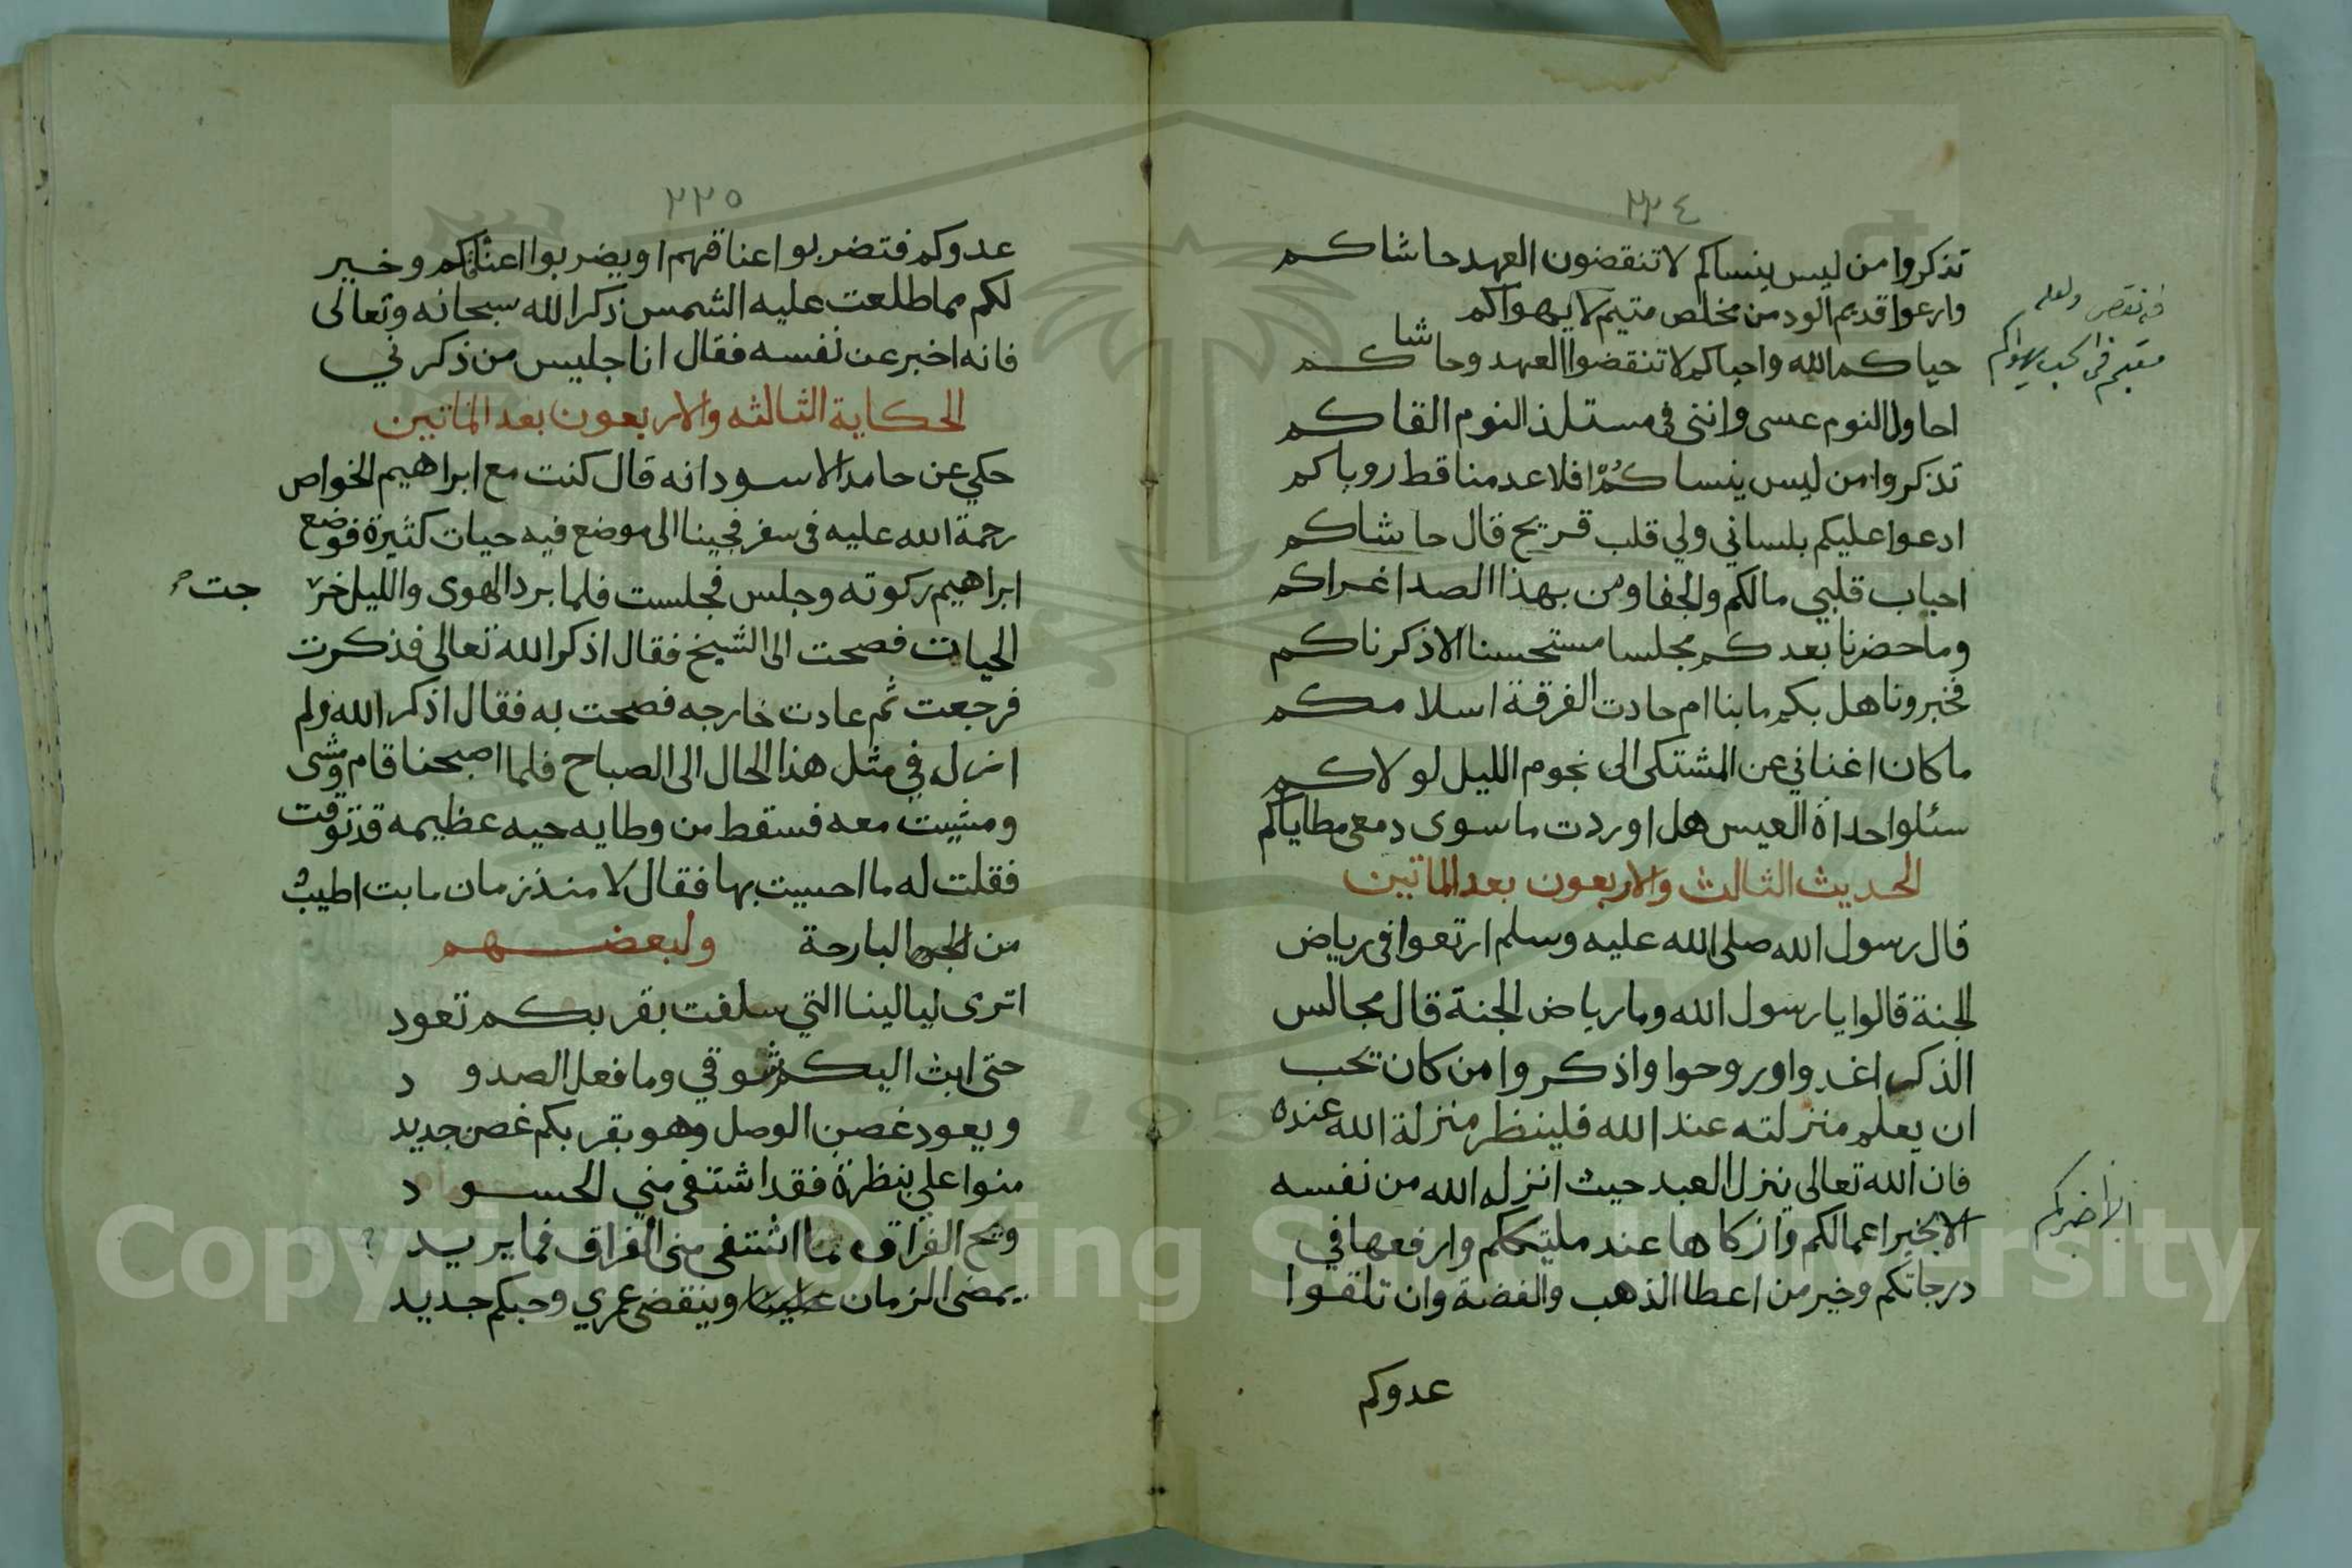 ٢٢٤
تذكروا من ليس ينساكم لا تنقضون العهد حاشاكم
وارعوا قديم الود من مخلص متيم لا يهواكم
فيه نقص ولعله
مقيم في الحب يهواكم
حياكم الله واحياكم لا تنقضوا العهد وحاشاكم
احاول النوم عسى وانني في مستلذ النوم القاكم
تذكروا من ليس ينساكم افلا عدمنا قط روياكم
ادعوا عليكم بلساني ولي قلب قريح قال حاشاكم
احباب قلبي مالكم والجفا ومن بهذا الصد اغراكم
وما حضرنا بعدكم مجلسا مستحسنا الا ذكرناكم
فخبرونا هل بكم ما بنا ام حادت الفرقة اسلامكم
ما كان اغناني عن المشتكى الى نجوم الليل لولاكم
سئلوا حداة العيس هل اوردت ما سوى دمعي مطاياكم
الحديث الثالث والاربعون بعد الماتين
قال رسول الله صلى الله عليه وسلم ارتعوا في رياض
الجنة قالوا يا رسول الله وما رياض الجنة قال مجالس
الذكر اغدوا وروحوا واذكروا من كان تحب
ان يعلم منزلته عند الله فلينظر منزلة الله عنده
فان الله تعالى ينزل العبد حيث انزله الله من نفسه
الا بخير اعمالكم وازكاها عند مليككم وارفعها في
الا اخبركم
درجاتكم وخير من اعطا الذهب والفضة وان تلقوا
عدوكم
٢٢٥
عدوكم فتضربوا اعناقهم او يضربوا اعناقكم وخير
لكم مما طلعت عليه الشمس ذكر الله سبحانه وتعالى
فانه اخبر عن نفسه فقال انا جليس من ذكرني
الحكاية الثالثه والاربعون بعد الماتين
حكي عن حامد الاسود انه قال كنت مع ابراهيم الخواص
رحمة الله عليه في سفر فجينا الى موضع فيه حيات كثيرة فوضع
ابراهيم ركوته وجلس فجلست فلما برد الهوى والليل خر جت
الحيات فصحت الى الشيخ فقال اذكر الله تعالى فذكرت
فرجعت ثم عادت خارجه فصحت به فقال اذكر الله ولم
ازل في مثل هذا الحال الى الصباح فلما اصبحنا قام ومشى
ومشيت معه فسقط من وطايه حيه عظيمه قد توقت
فقلت له ما احسيت بها فقال لا منذ زمان ما بت اطيب
من البارحة ولبعضهم
اترى ليالينا التي سلفت بقربكم تعود
حتى ابث اليكم شوقي وما فعل الصدود
ويعود غصن الوصل وهو بقربكم غصن جديد
منوا علي بنظرة فقد اشتفى مني الحسود
ويح الفراق ما اشتفى مني الفراق فما يريد
يمضى الزمان وينقضي عمري وحبكم جديد
Copyright © King Saud University
195